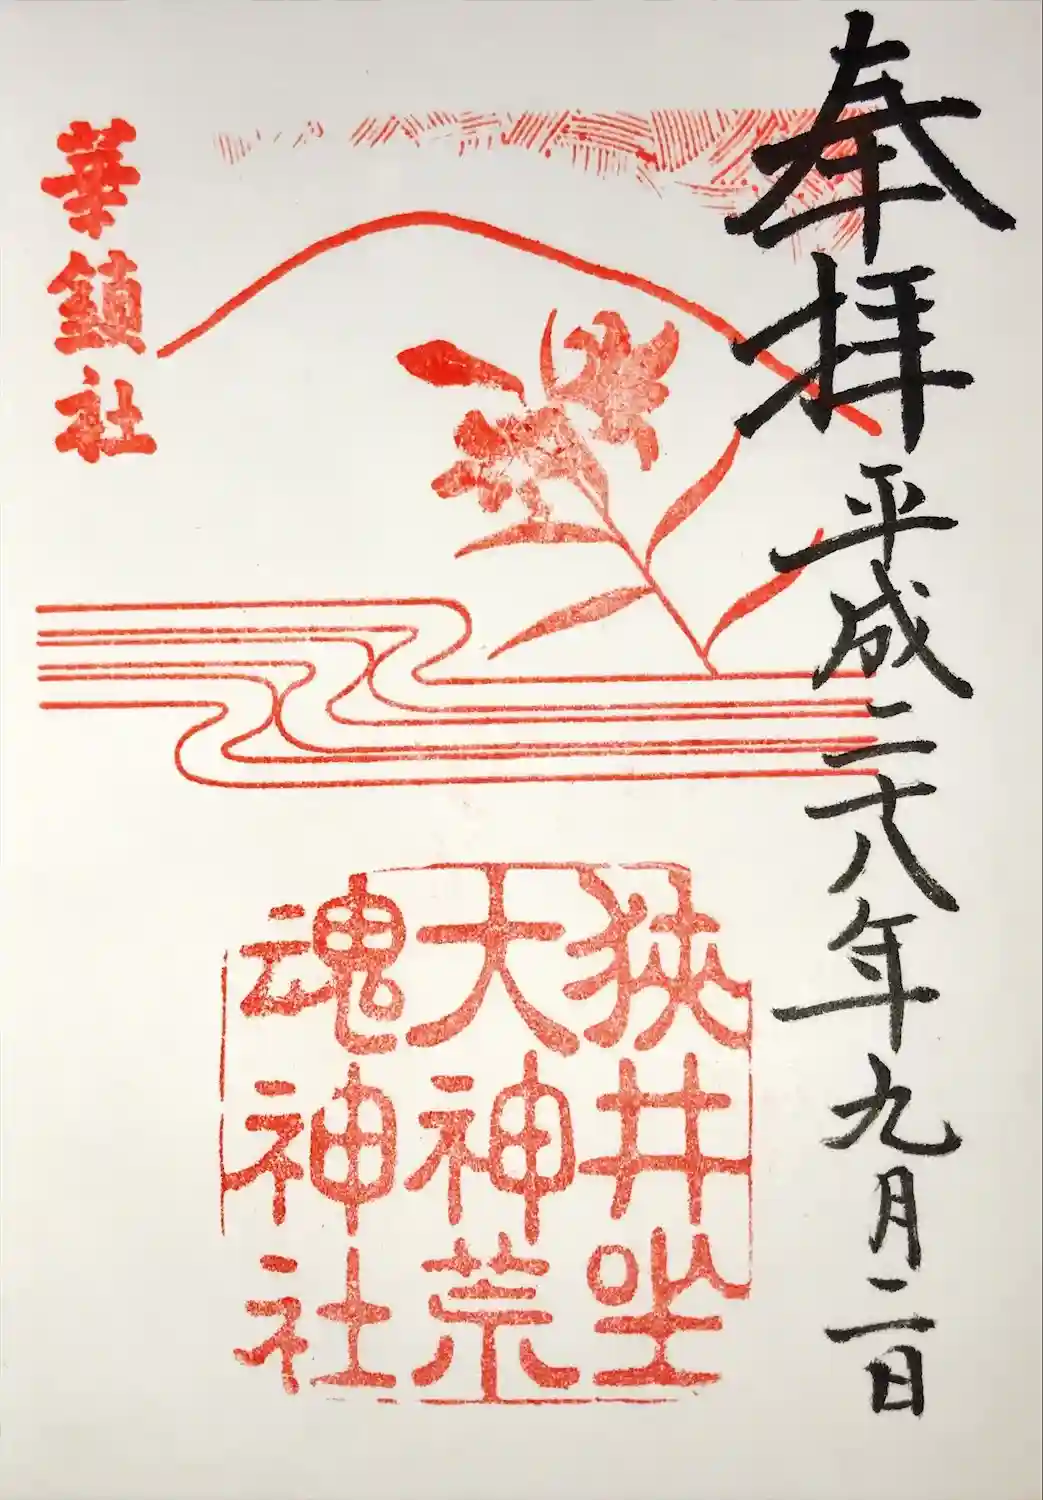 奉拝
平成二十八年九月二日
華鎮社
狭井坐
大神荒
魂神社